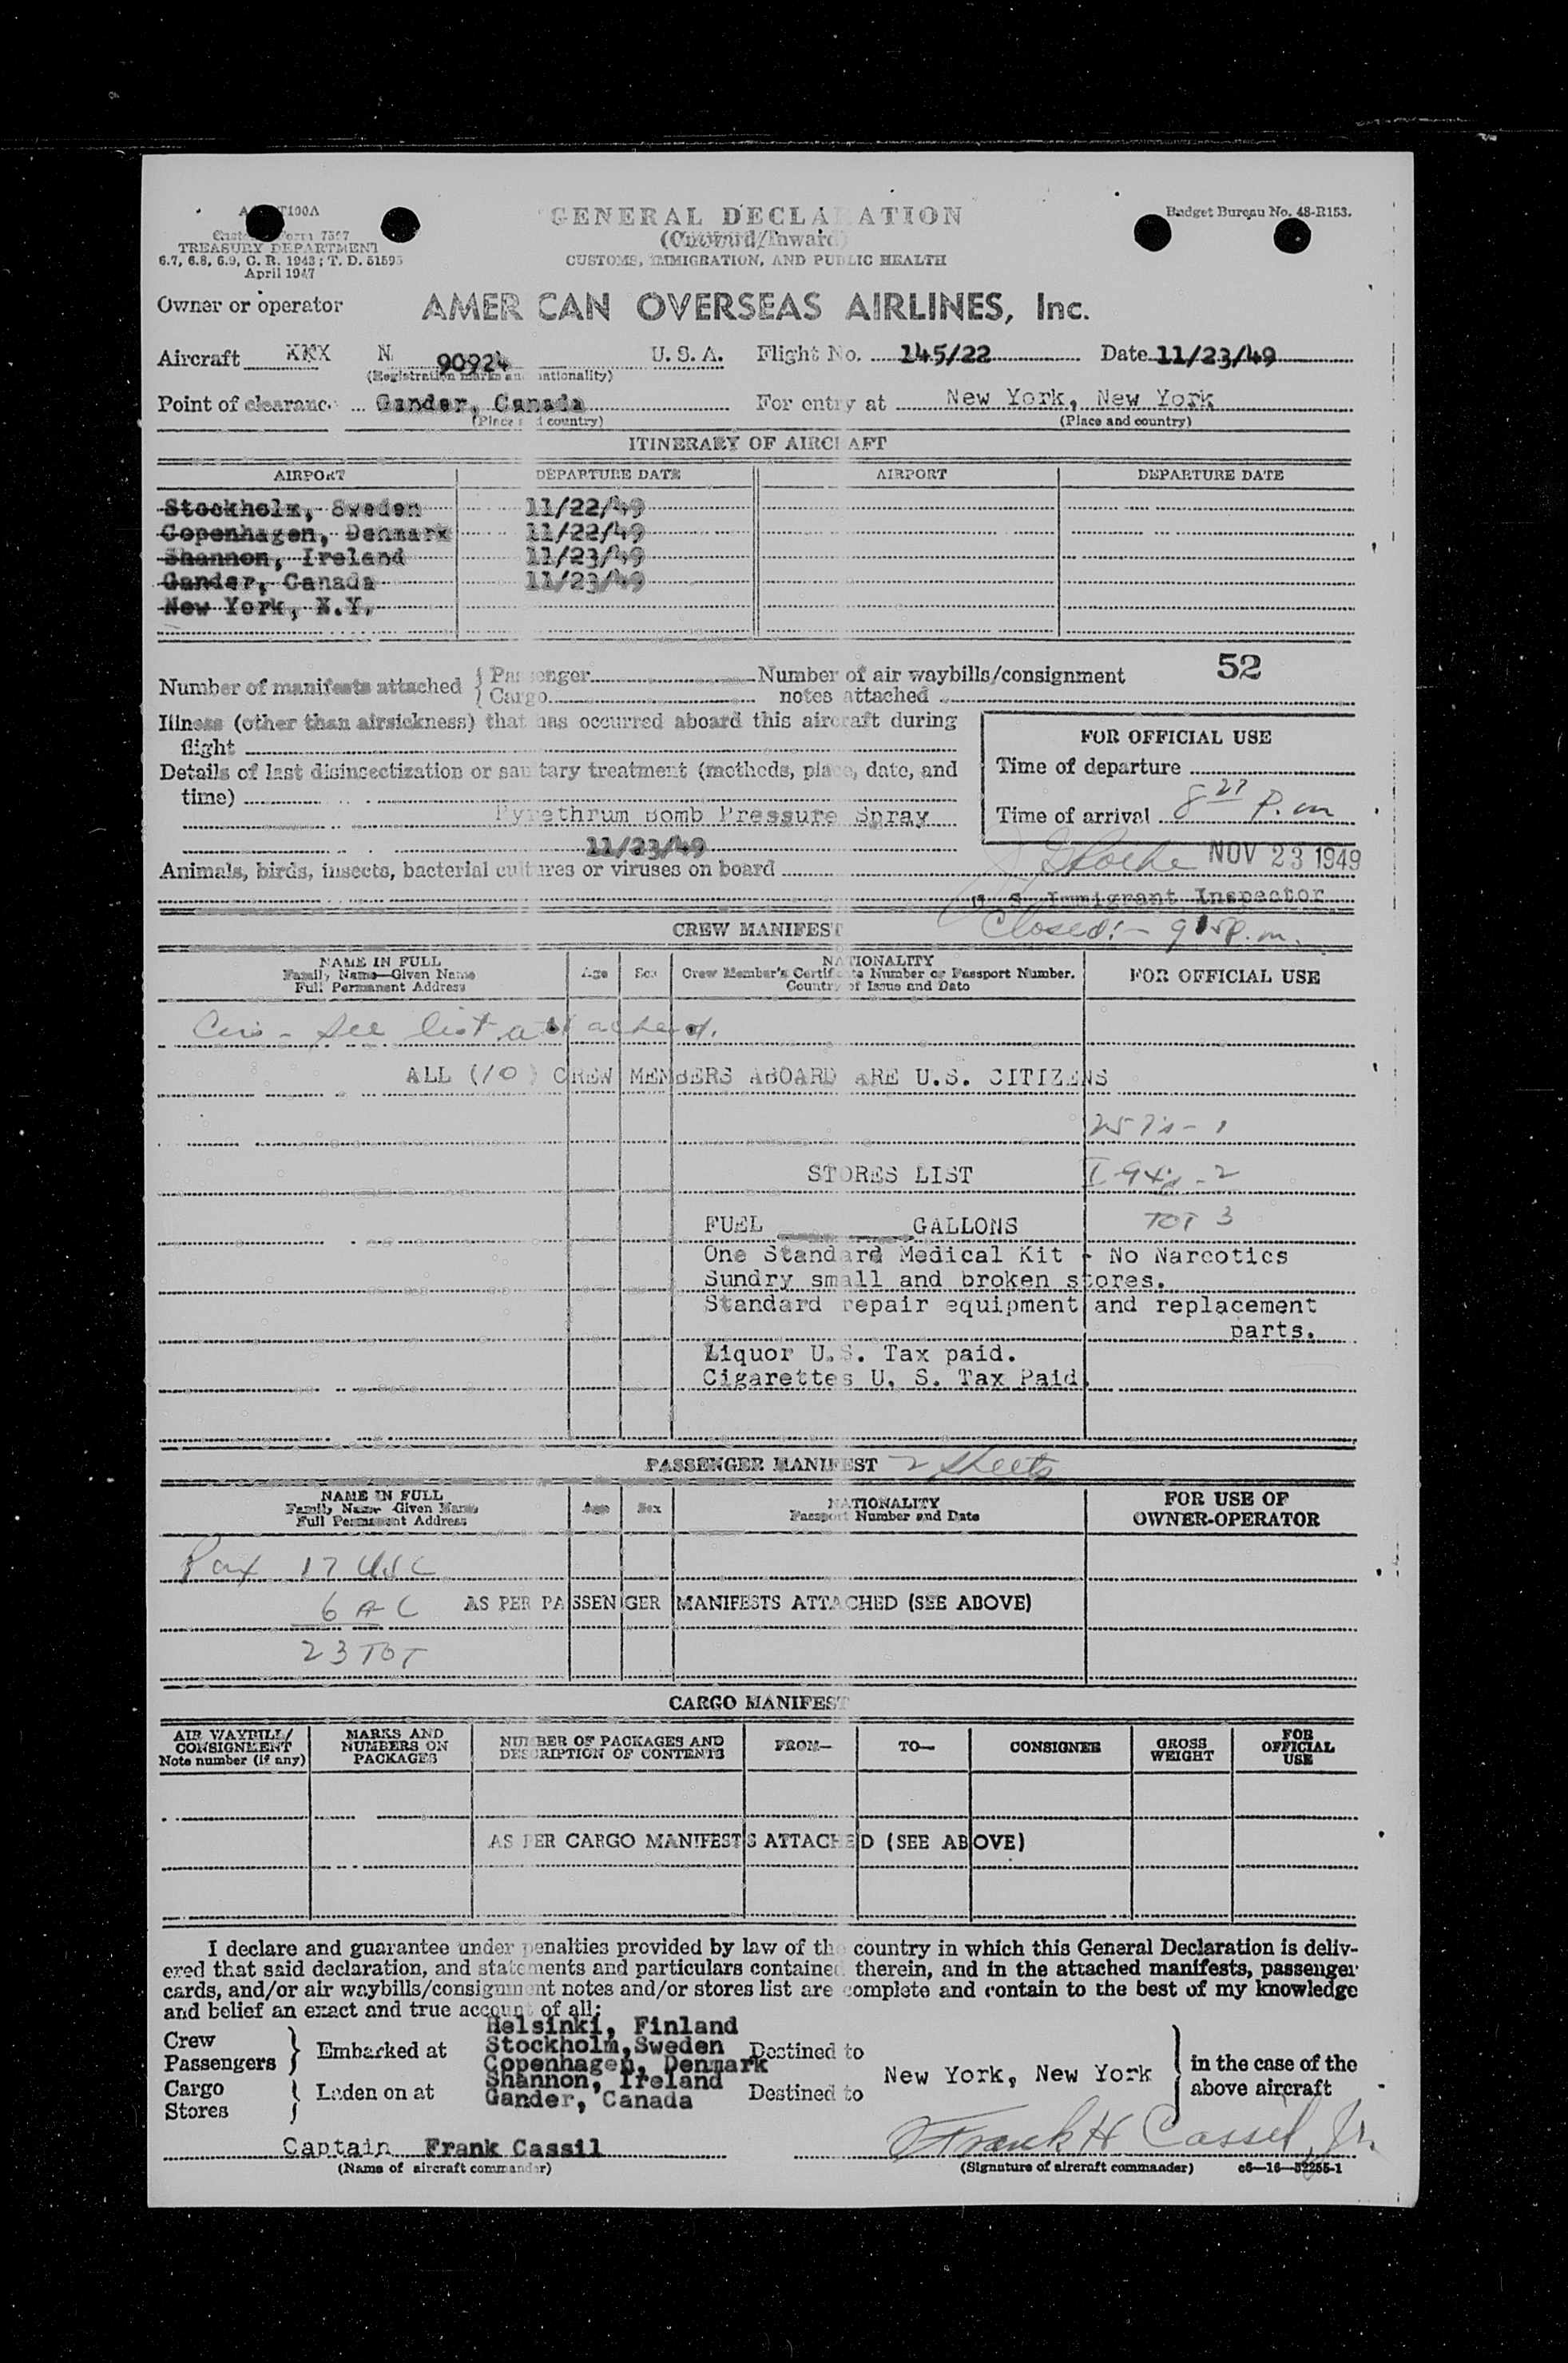 GENERAL DECLARATION
Budget Bureau No. 48-R153.
(Outward/Inward)
TREASURY DEPARTMENT
6.7, 6.8, 6.9, C. R. 1943; T. D. 51595
April 1947
CUSTOMS, IMMIGRATION, AND PUBLIC HEALTH
Owner or operator AMERICAN OVERSEAS AIRLINES, Inc.
Aircraft N 90924 U. S. A. Flight No. 145/22 Date 11/23/49
(Registration marks and nationality)
Point of clearance Gander, Canada For entry at New York, New York
(Place and country) (Place and country)
ITINERARY OF AIRCRAFT
AIRPORT DEPARTURE DATE AIRPORT DEPARTURE DATE
Stockholm, Sweden 11/22/49
Copenhagen, Denmark 11/22/49
Shannon, Ireland 11/23/49
Gander, Canada 11/23/49
New York, N.Y.
Number of manifests attached { Passenger Number of air waybills/consignment 52
{ Cargo notes attached
Illness (other than airsickness) that has occurred aboard this aircraft during
flight
FOR OFFICIAL USE
Details of last disinsectization or sanitary treatment (methods, place, date, and
time)
Time of departure
Pyrethrum Bomb Pressure Spray
Time of arrival 8 27 P.m
11/23/49
NOV 23 1949
Animals, birds, insects, bacterial cultures or viruses on board
U. S. Immigrant Inspector
CREW MANIFEST
Closed:- 9 15 p.m.
NAME IN FULL
Family Name—Given Name
Full Permanent Address
Age Sex
NATIONALITY
Crew Member's Certificate Number or Passport Number.
Country of Issue and Date
FOR OFFICIAL USE
see list attached.
ALL (10) CREW MEMBERS ABOARD ARE U.S. CITIZENS
257's - 1
STORES LIST
I-94's - 2
FUEL GALLONS
TOT 3
One Standard Medical Kit - No Narcotics
Sundry small and broken stores.
Standard repair equipment and replacement
parts.
Liquor U.S. Tax paid.
Cigarettes U. S. Tax Paid.
PASSENGER MANIFEST 2 sheets
NAME IN FULL
Family Name Given Name
Full Permanent Address
Age Sex
NATIONALITY
Passport Number and Date
FOR USE OF
OWNER-OPERATOR
Pax 17 USC
6 AC AS PER PASSENGER MANIFESTS ATTACHED (SEE ABOVE)
23 TOT
CARGO MANIFEST
AIR WAYBILL/
CONSIGNMENT
Note number (if any)
MARKS AND
NUMBERS ON
PACKAGES
NUMBER OF PACKAGES AND
DESCRIPTION OF CONTENTS
FROM— TO— CONSIGNEE
GROSS
WEIGHT
FOR
OFFICIAL
USE
AS PER CARGO MANIFESTS ATTACHED (SEE ABOVE)
I declare and guarantee under penalties provided by law of the country in which this General Declaration is deliv-
ered that said declaration, and statements and particulars contained therein, and in the attached manifests, passenger
cards, and/or air waybills/consignment notes and/or stores list are complete and contain to the best of my knowledge
and belief an exact and true account of all:
Crew
Passengers } Embarked at
Cargo
Stores } Laden on at
Helsinki, Finland
Stockholm, Sweden
Copenhagen, Denmark
Shannon, Ireland
Gander, Canada
Destined to
Destined to
New York, New York
in the case of the
above aircraft
Captain Frank Cassil Frank H Cassil, Jr.
(Name of aircraft commander) (Signature of aircraft commander) c6—16—52255-1